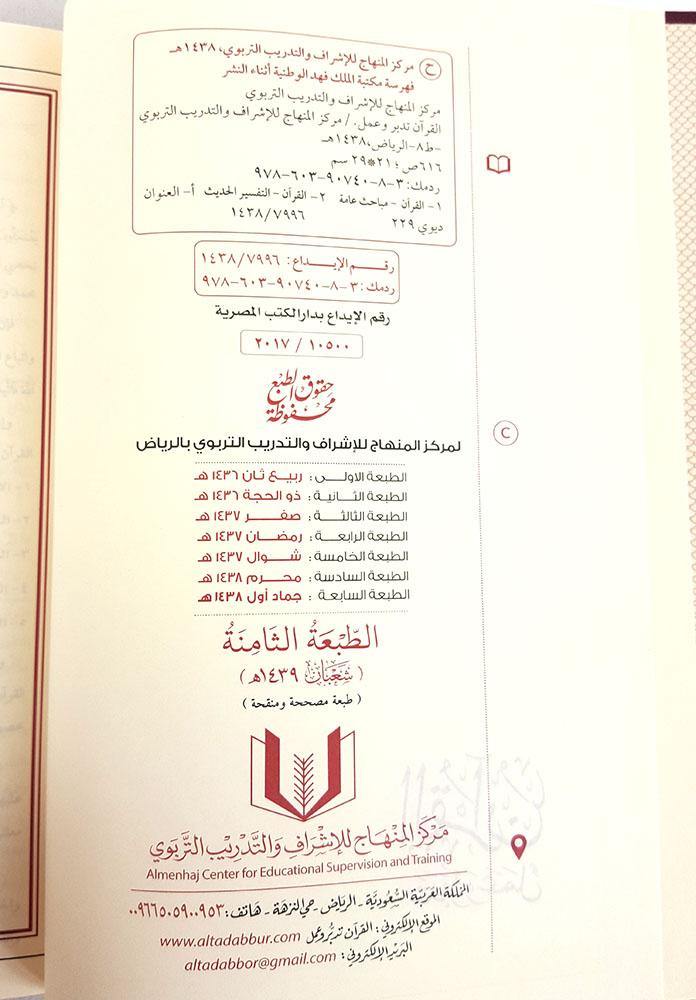 ح مركز المنهاج للإشراف والتدريب التربوي، ١٤٣٨هـ
فهرسة مكتبة الملك فهد الوطنية أثناء النشر
مركز المنهاج للإشراف والتدريب التربوي
القرآن تدبر وعمل. / مركز المنهاج للإشراف والتدريب التربوي
-ط٨-الرياض، ١٤٣٨هـ
٦١٦ص ؛ ٢١*٢٩ سم
ردمك: ٣-٨-٩٠٧٤٠-٦٠٣-٩٧٨
١- القرآن - مباحث عامة ٢- القرآن - التفسير الحديث أ- العنوان
ديوي ٢٢٩ ١٤٣٨/٧٩٩٦
رقم الإيداع: ١٤٣٨/٧٩٩٦
ردمك: ٣-٨-٩٠٧٤٠-٦٠٣-٩٧٨
رقم الإيداع بدار الكتب المصرية
١٠٥٠٠ / ٢٠١٧
حقوق الطبع محفوظة
C
لمركز المنهاج للإشراف والتدريب التربوي بالرياض
الطبعة الاولى: ربيع ثان ١٤٣٦ هـ
الطبعة الثانية: ذو الحجة ١٤٣٦ هـ
الطبعة الثالثة: صفر ١٤٣٧ هـ
الطبعة الرابعة: رمضان ١٤٣٧ هـ
الطبعة الخامسة: شوال ١٤٣٧ هـ
الطبعة السادسة: محرم ١٤٣٨ هـ
الطبعة السابعة: جماد أول ١٤٣٨ هـ
الطَّبْعَةُ الثَّامِنَةُ
( شَعْبَان ١٤٣٩هـ )
( طبعة مصححة ومنقحة )
مَركَز المِنهَاج للإشرَافِ وَالتَّدْرِيْبِ التَّربَوِي
Almenhaj Center for Educational Supervision and Training
المملكة العربية السعودية - الرياض - حي النزهة - هاتف: ٠٠٩٦٦٥٠٥٩٠٠٩٥٣
الموقع الإلكتروني: القرآن تدبر وعمل www.altadabbur.com
البريد الإلكتروني: altadabbor@gmail.com